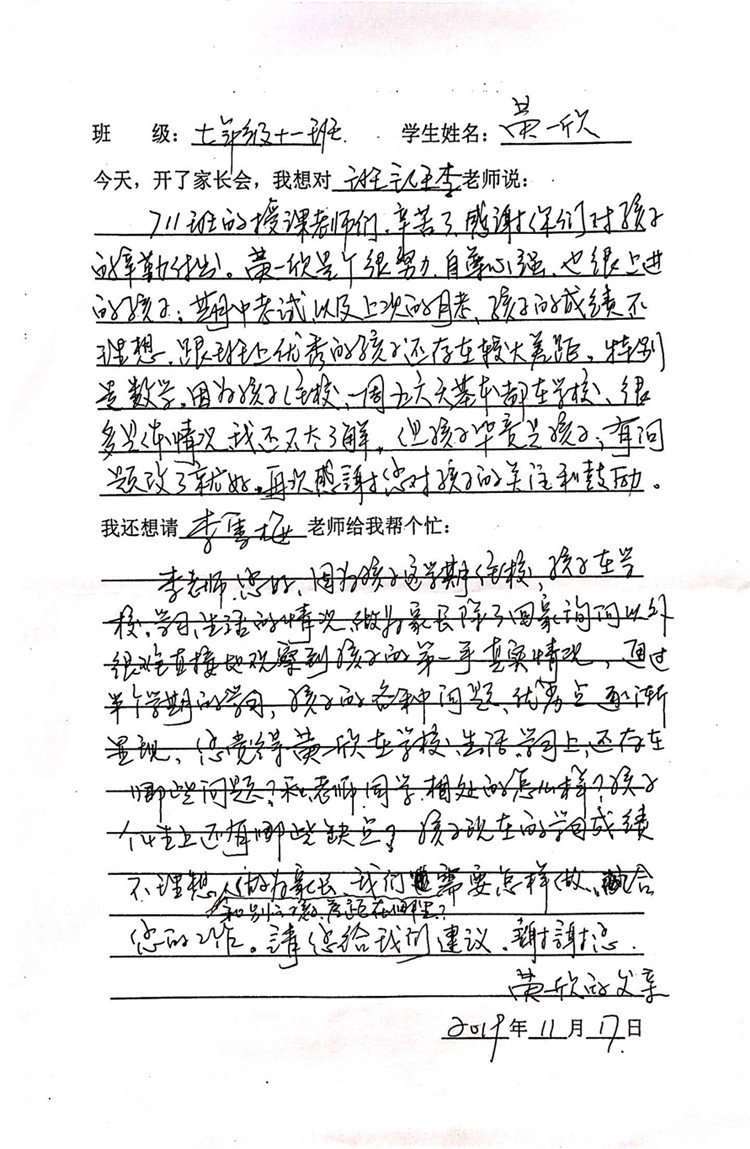 班 级：七年级十一班 学生姓名：黄一欣
今天，开了家长会，我想对 班主任李老师说：
711班的授课老师们，辛苦了，感谢你们对孩子
的辛勤付出。黄一欣是个很努力，自尊心强，也很上进
的孩子；期中考试以及上次的月考，孩子的成绩不
理想，跟班上优秀的孩子还存在较大差距。特别
是数学，因为孩子住校，一周五六天基本都在学校，很
多具体情况，我还不太了解。但孩子毕竟是孩子；有问
题改了就好。再次感謝您对孩子的关注和鼓励。
我还想请 李雪梅 老师给我帮个忙：
李老师您好，因为孩子这学期住校，孩子在学
校，学习、生活的情况，做为家长除了回家询问以外
很难直接地观察到孩子的第一手真实情况，通过
半个学期的学习，孩子的各种问题、优劣点逐渐
显现，您觉得黄一欣在学校、生活、学习上，还存在
哪些问题？和老师、同学，相处的怎么样？孩子
个性上还有哪些缺点？孩子现在的学习成绩
不理想，做为家长，我们需要怎样做，配合
和别的孩子差距在哪里？
您的工作。請您给我们建议。謝謝您.
黄一欣的父亲
2019年11月17日